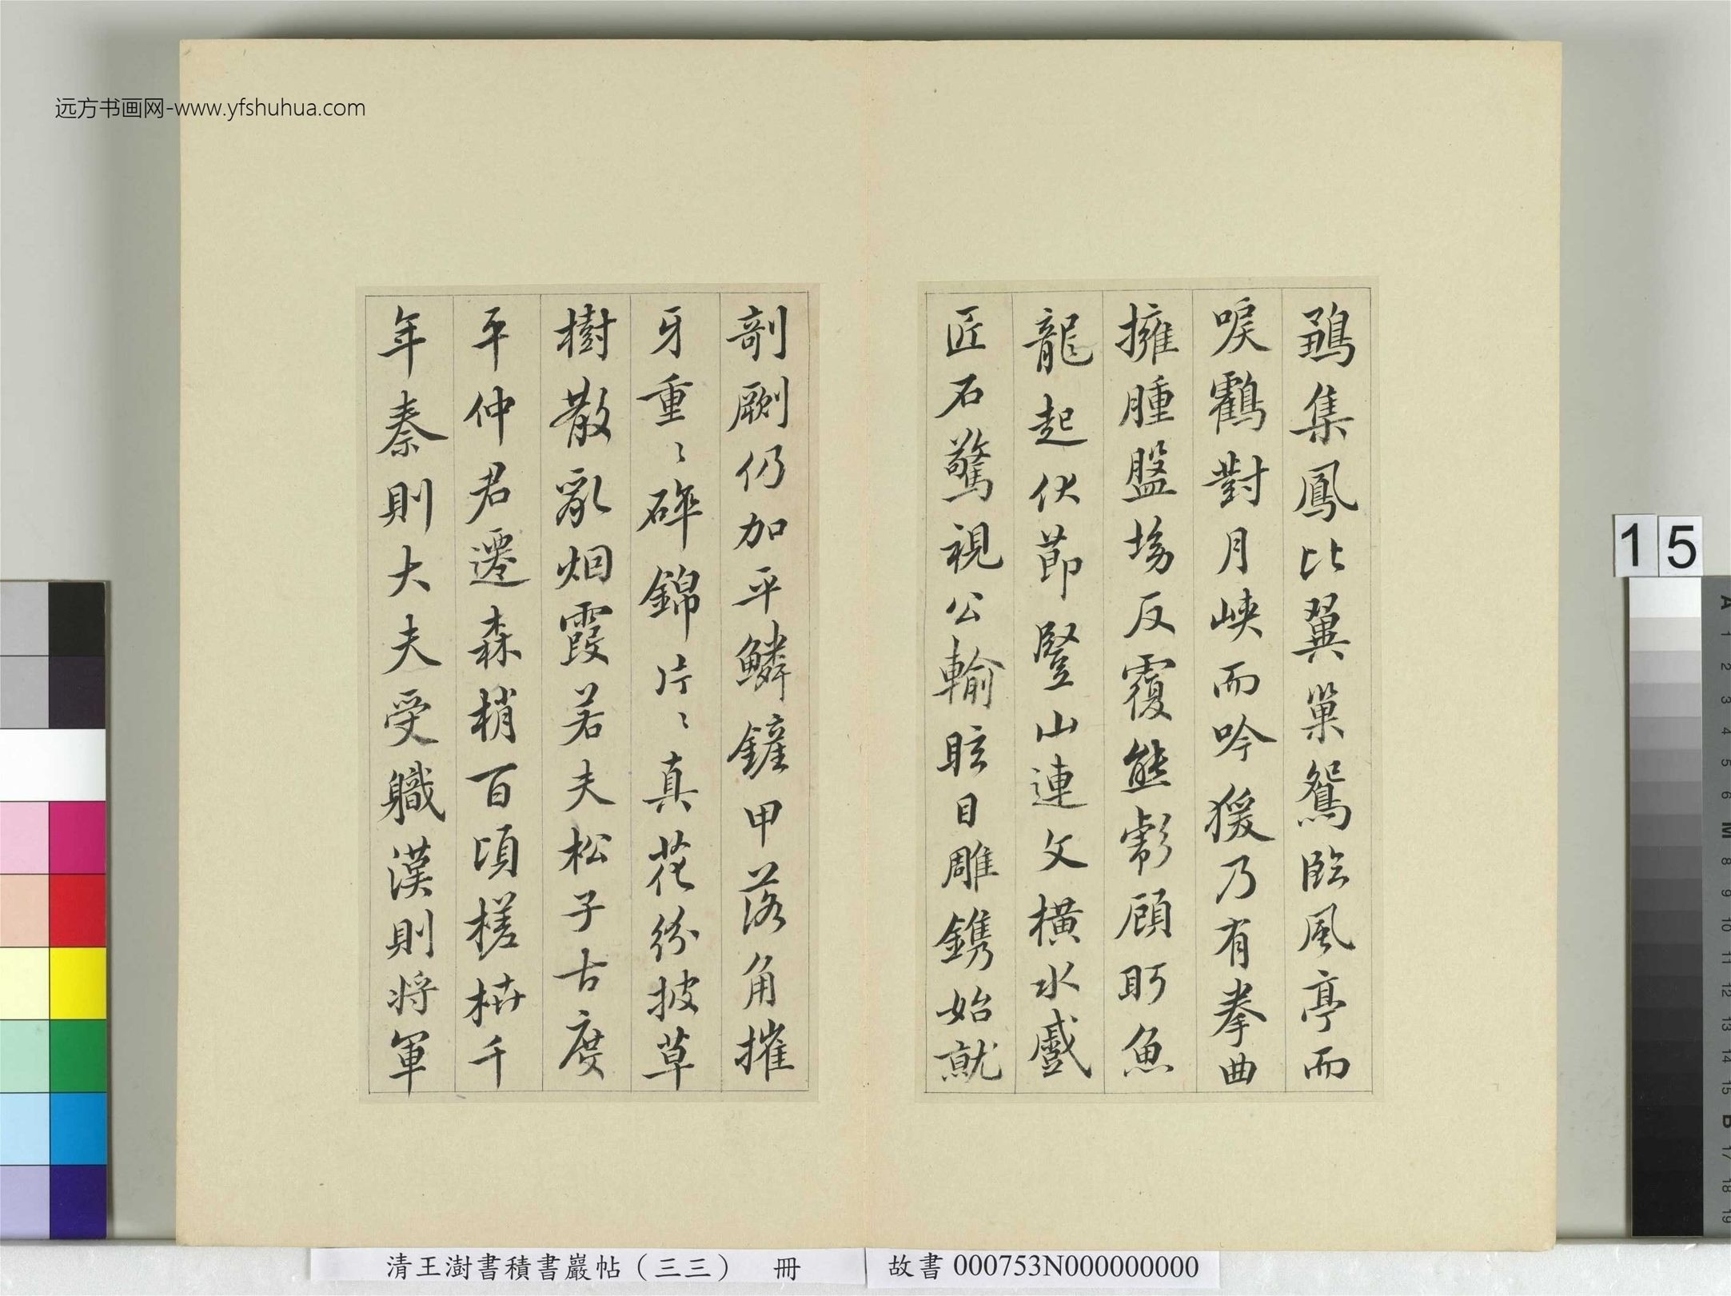 远方书画网-www.yfshuhua.com
鶵集鳳比翼巢鴛臨風亭而
唳鶴對月峽而吟猨乃有拳曲
擁腫盤坳反覆熊彪顧盻魚
龍起伏節豎山連文橫水蹙
匠石驚視公輸眩目雕鐫始就
剞劂仍加平鱗鏟甲落角摧
牙重〻碎錦片〻真花紛披草
樹散亂烟霞若夫松子古度
平仲君遷森梢百頃槎枿千
年秦則大夫受職漢則將軍
15
清王澍書積書巖帖（三三） 冊
故書 000753N000000000